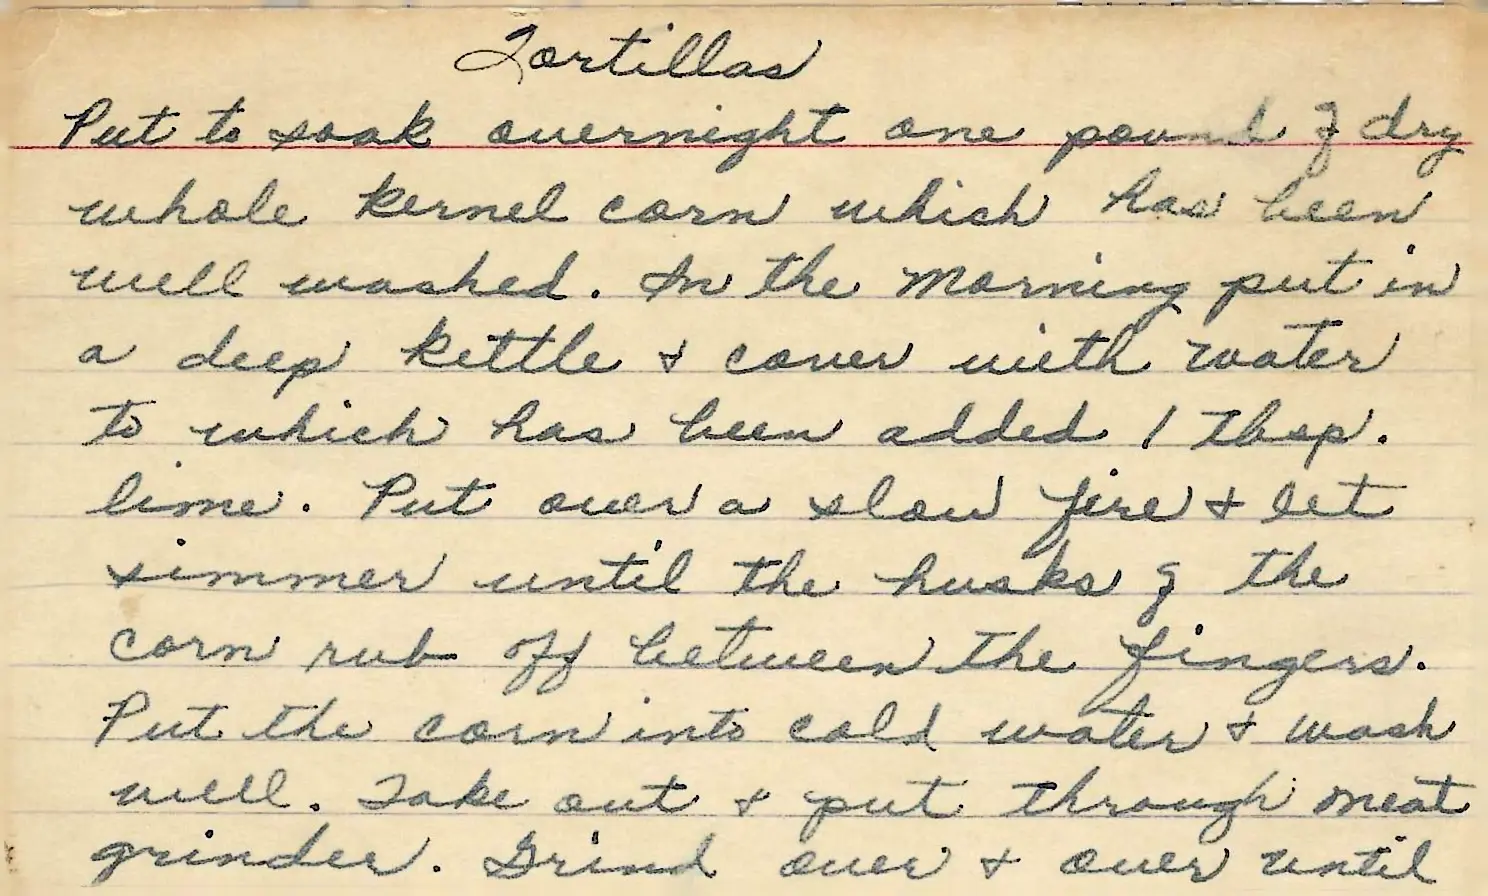 Tortillas
Put to soak overnight one pound of dry
whole kernel corn which has been
well washed. In the morning put in
a deep kettle & cover with water
to which has been added 1 Tbsp.
lime. Put over a slow fire & let
simmer until the husks of the
corn rub off between the fingers.
Put the corn into cold water & wash
well. Take out & put through meat
grinder. Grind over & over until